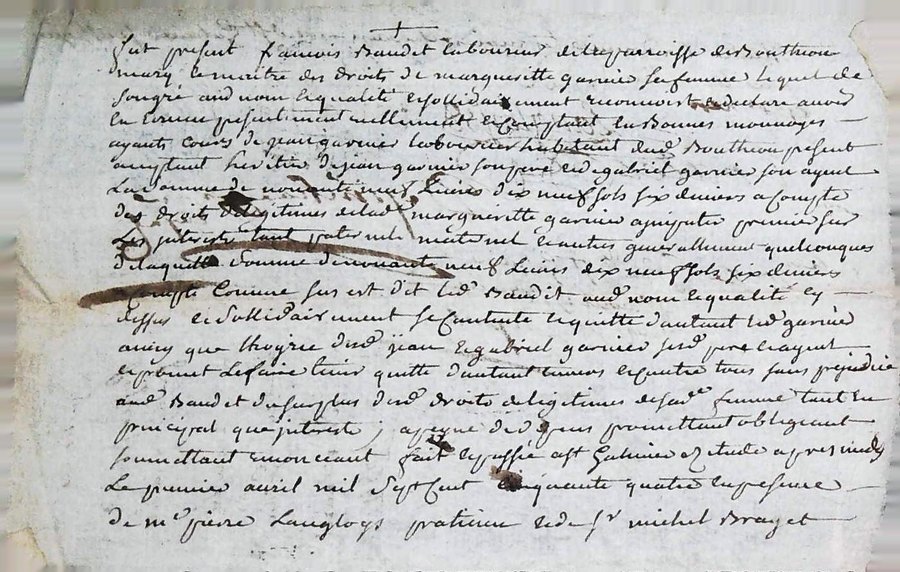 fut present françois Baudet laboureur de la parroisse de Bonthéon
mary le maitre des droits de margueritte garnier sa femme lequel de
son gré aud nom & qualité & sollidairement reconnoist & declare avoir
eu & receu presentement reellement & comptant en bonnes monnoyes
ayants cours de jean garnier laboureur habitant dud Bonthéon present
acceptant heritier de jean garnier son pere & de gabriel garnier son ayeul
la somme de nonante neuf livres dix neuf sols six deniers a compte
des droits de legitimes de lad margueritte garnier a imputer premier sur
les interests tant paternels maternels & autres generallement quelconques
de laquelle somme de nonante neuf livres dix neuf sols six deniers
a compte comme sus est dit led Baudit aud nom & qualité cy
dessus & sollidairement se contente & quitte d'autant led garnier
ainsy que l'hoyrie dud jean & gabriel garnier sesd pere & ayeul
& promet le faire tenir quitte d'autant envers & contre tous sans prejudice
aud Baudet du surplus desd droits de legitimes de sad femme tant en
principal que interests, a peyne de depens promettant obligeant
soumettant renonceant fait & passé a St Galmier etude apres midy
le premier avril mil sept cent cinquante quatre en presence
de me pierre Langloys praticien & de sr michel Brayet